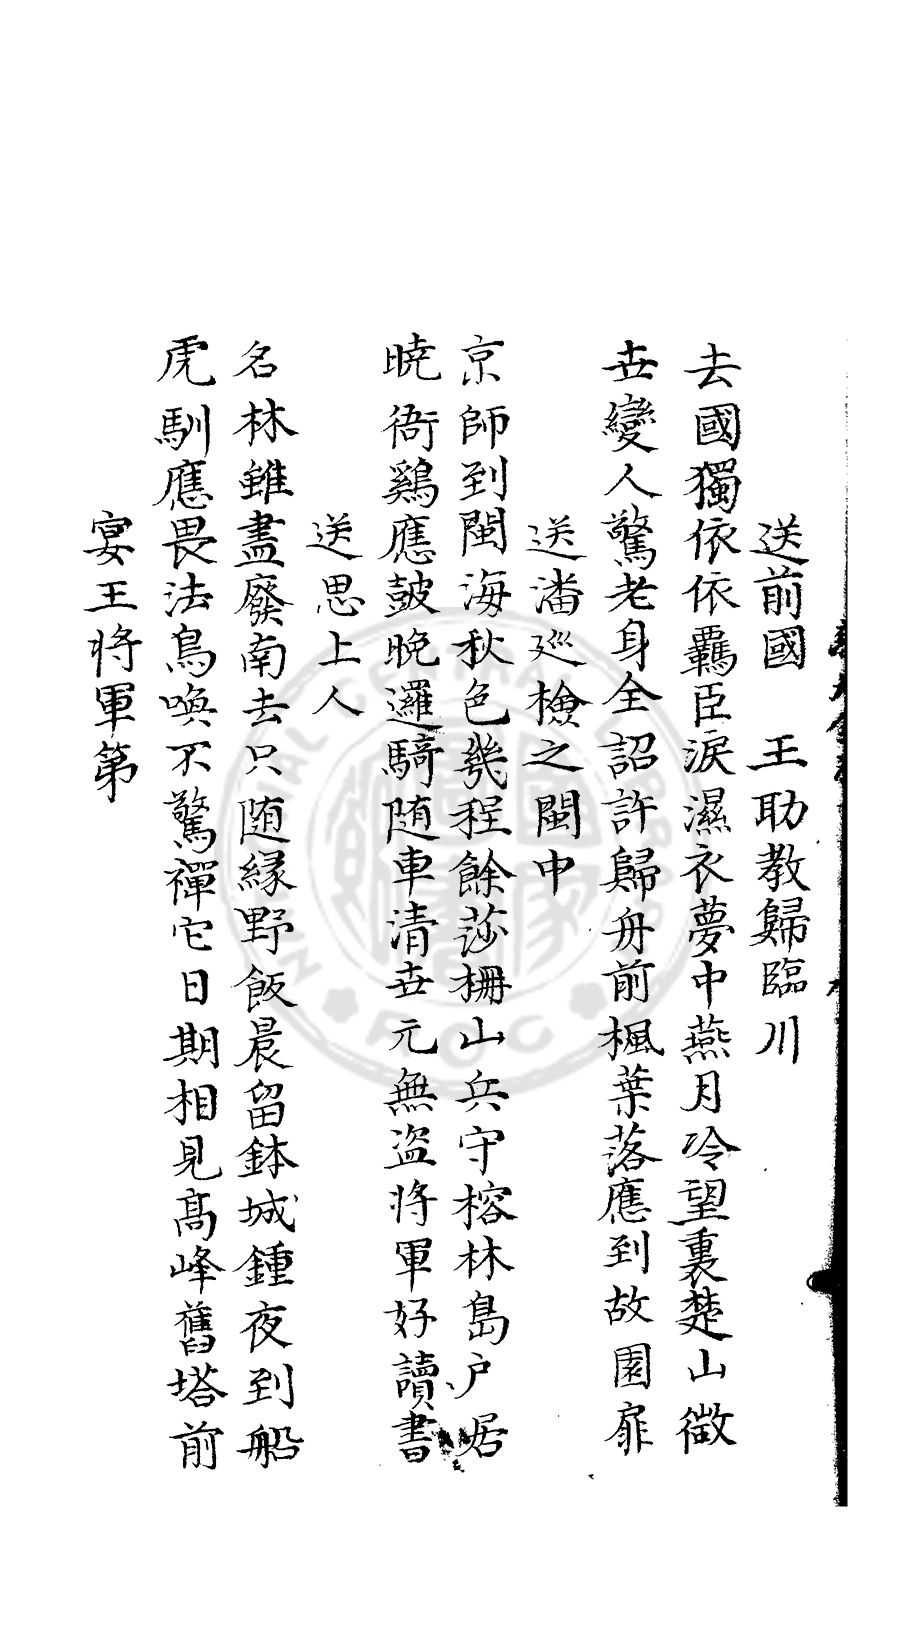 送前國　王助教歸臨川
去國獨依依羈臣淚濕衣夢中燕月冷望裏楚山微
世變人驚老身全詔許歸舟前楓葉落應到故園扉
送潘廵檢之閩中
京師到閩海秋色幾程餘莎柵山兵守榕林島户居
曉衙鷄應鼓晚邏騎随車清世元無盜將軍好讀書
送思上人
名林雖盡廢南去只随緣野飯晨留鉢城鍾夜到船
虎馴應畏法鳥喚不驚禪它日期相見髙峰舊塔前
宴王將軍第